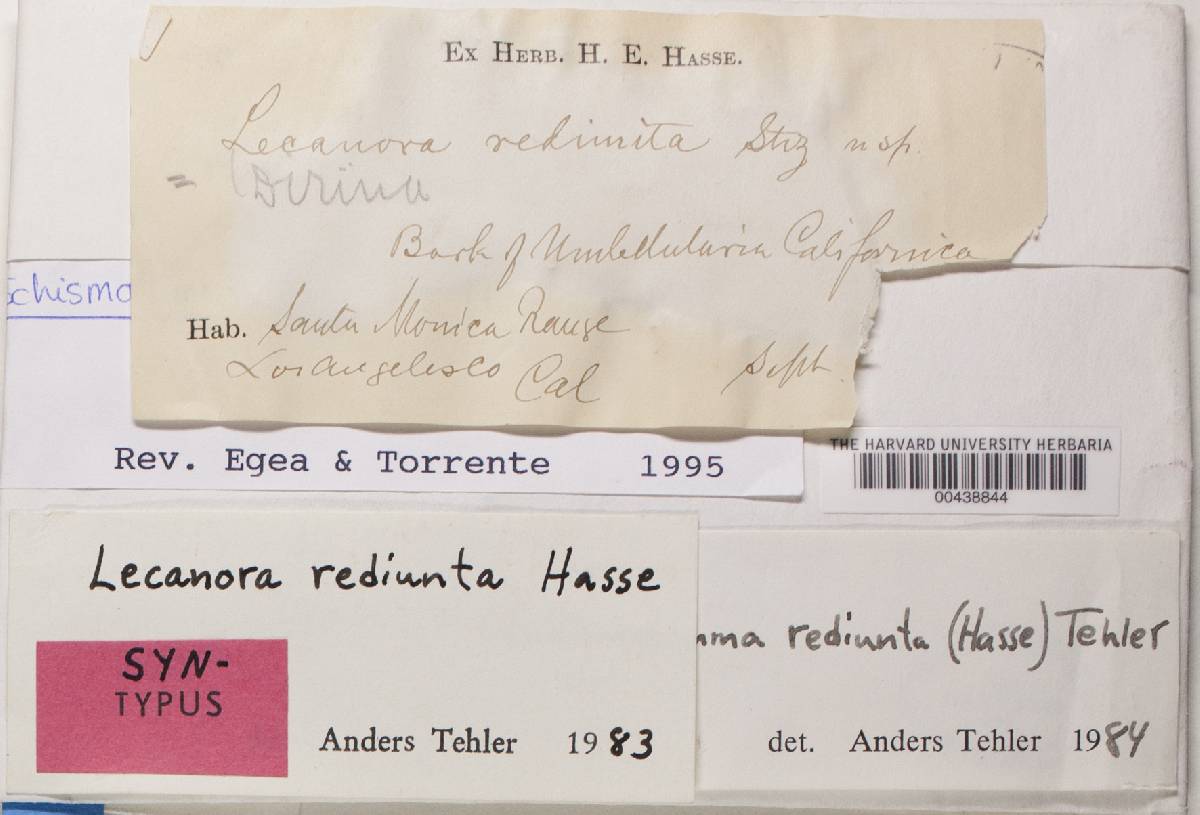 Ex Herb. H. E. Hasse.
Lecanora redimita Stiz n sp.
= Dirina
Bark of Umbellularia Californica
Hab. Santa Monica Range
Los Angeles Co Cal Sept.
Schismo
Rev. Egea & Torrente 1995
THE HARVARD UNIVERSITY HERBARIA
00438844
Lecanora rediunta Hasse
SYN-
TYPUS
Anders Tehler 1983
mma rediunta (Hasse) Tehler
det. Anders Tehler 1984